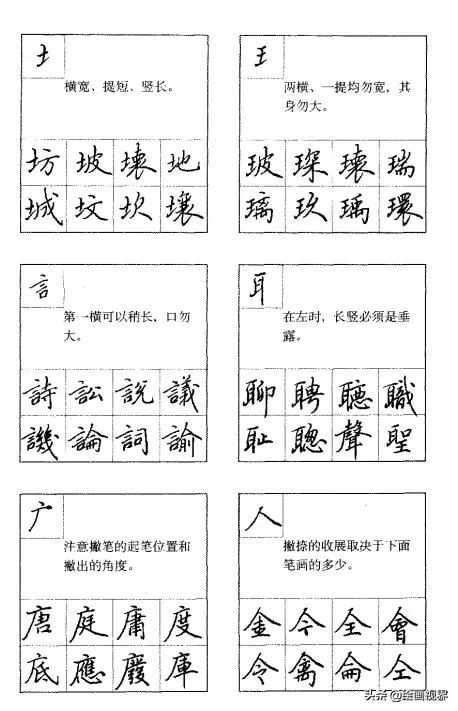 土
横宽、提短、竖长。
坊坡壞地
城坟坎壤
王
两横、一提均勿宽，其
身勿大。
玻琛瓌瑞
璃玖瑀環
言
第一横可以稍长，口勿
大。
詩訟説議
譏論詞諭
耳
在左时，长竖必须是垂
露。
聊聘聽職
耻聰聲聖
广
注意撇笔的起笔位置和
撇出的角度。
唐庭庸度
底應廢庫
人
撇捺的收展取决于下面
笔画的多少。
金今全會
令禽侖仝
头条@绘画视界